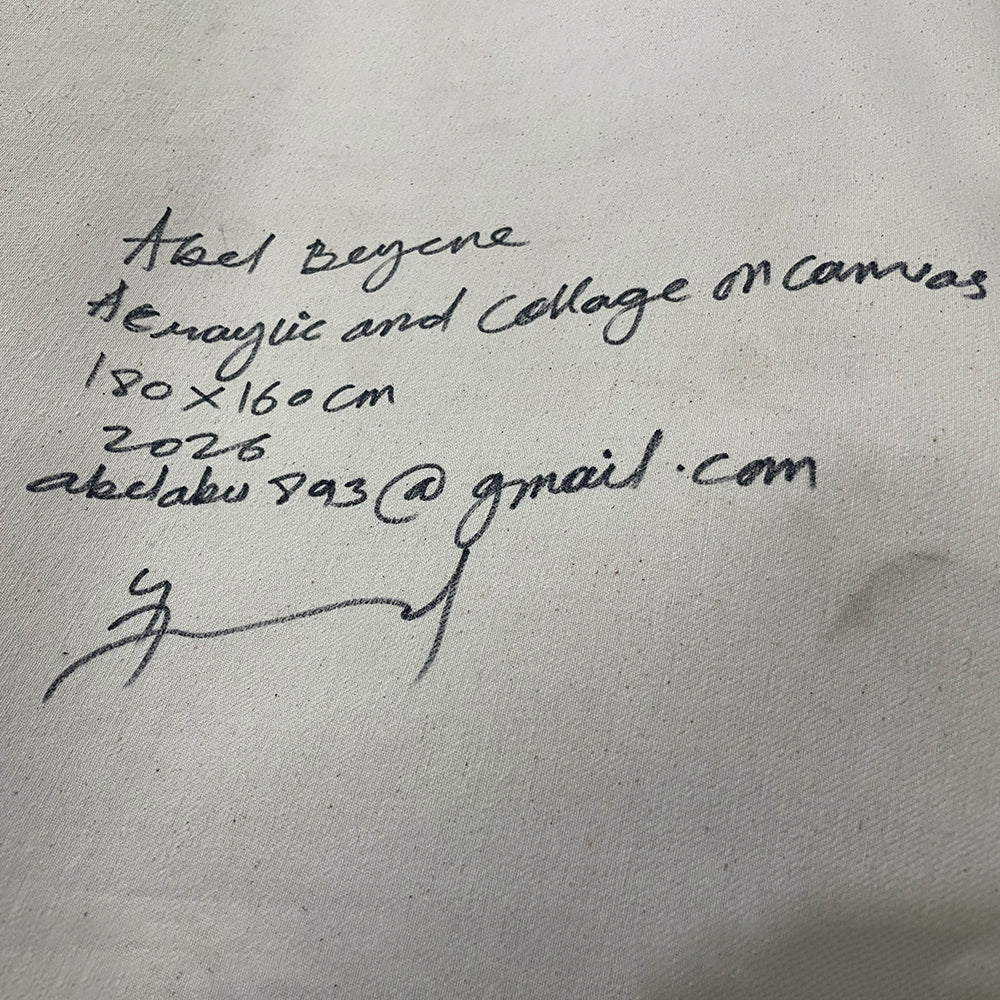 Abel Beyene
Acraylic and Collage on canvas
180 x 160 cm
2026
abelabu893@gmail.com